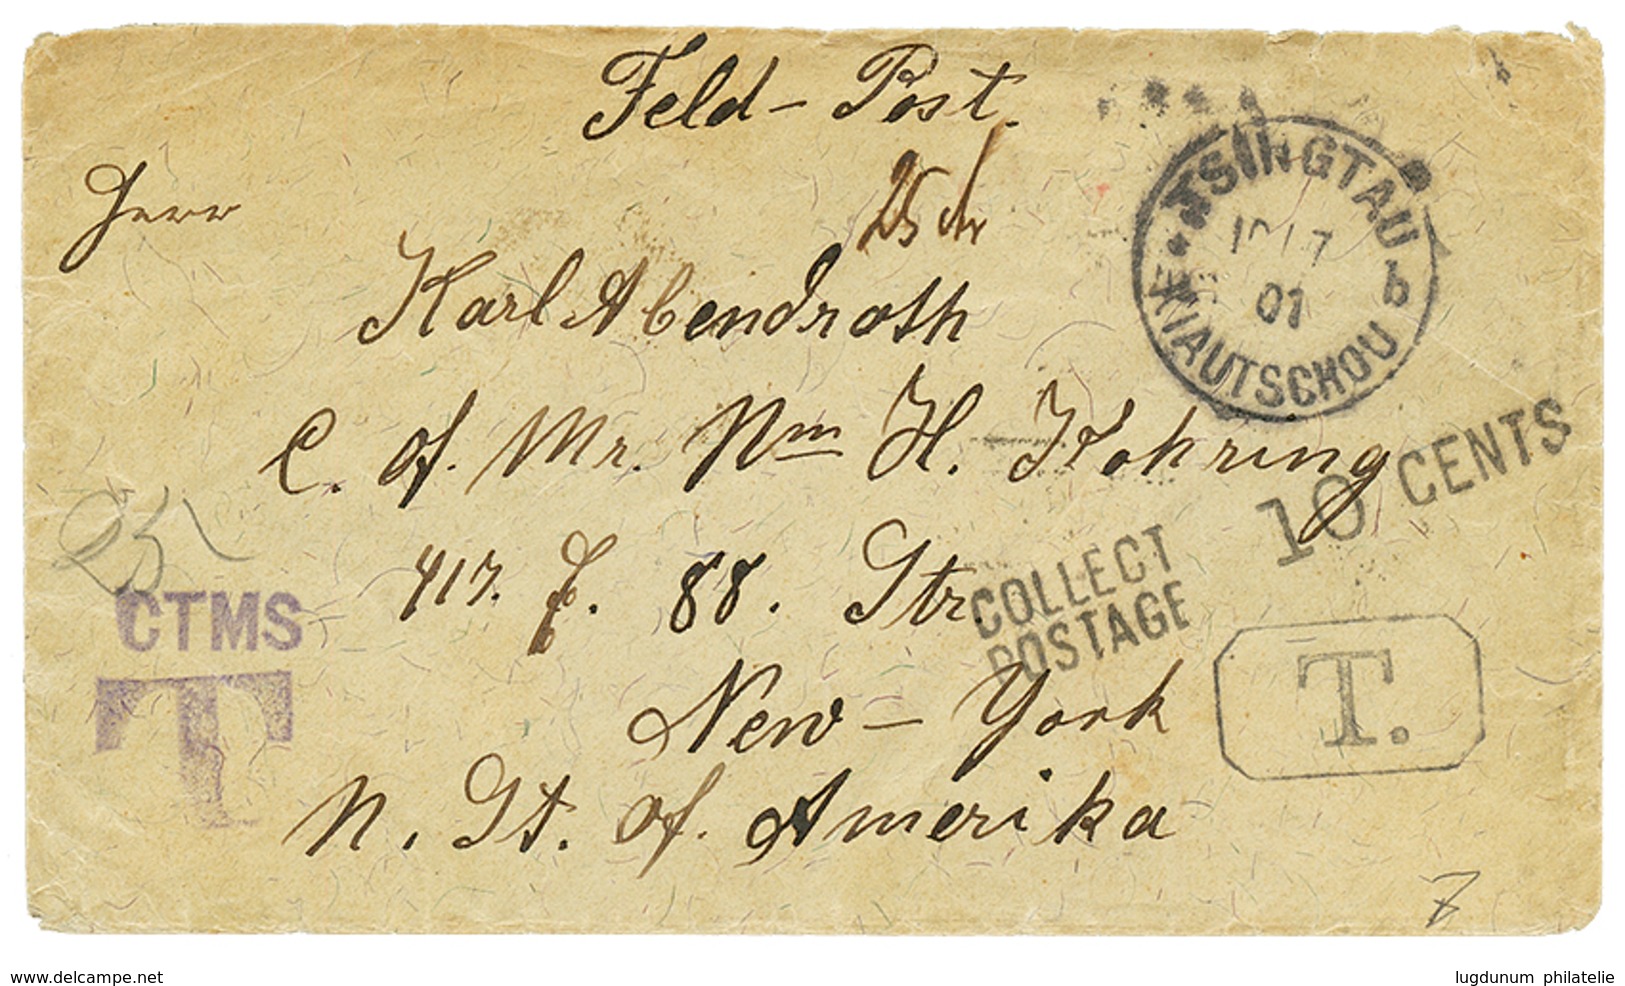 Feld-Post.
TSINGTAU
KIAUTSCHOU
b
01
Herr
Karl Abendroth
C. of. Mr. Wm H. Kohring
10 CENTS
417. E. 88. Str.
COLLECT
POSTAGE
25
CTMS
T
T.
New-York
N. St. of. Amerika
7
www.delcampe.net
lugdunum philatelie